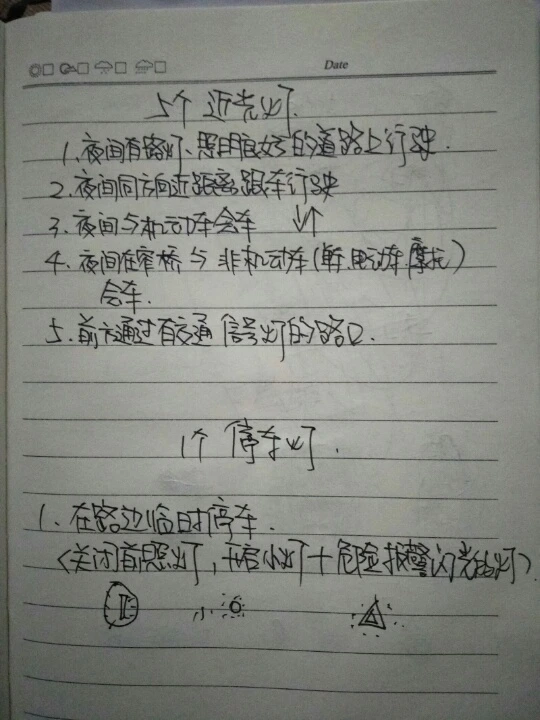 Date
5个近光灯.
1、夜间有路灯、照明良好的道路上行驶.
2、夜间同方向近距离跟车行驶
3、夜间与机动车会车 ↓↑
4、夜间在窄桥与非机动车(单车.电动车.摩托)
会车.
5.前方通过有交通信号灯的路口.
1个停车灯.
1、在路边临时停车.
(关闭前照灯,开启小灯+危险报警闪光的灯)